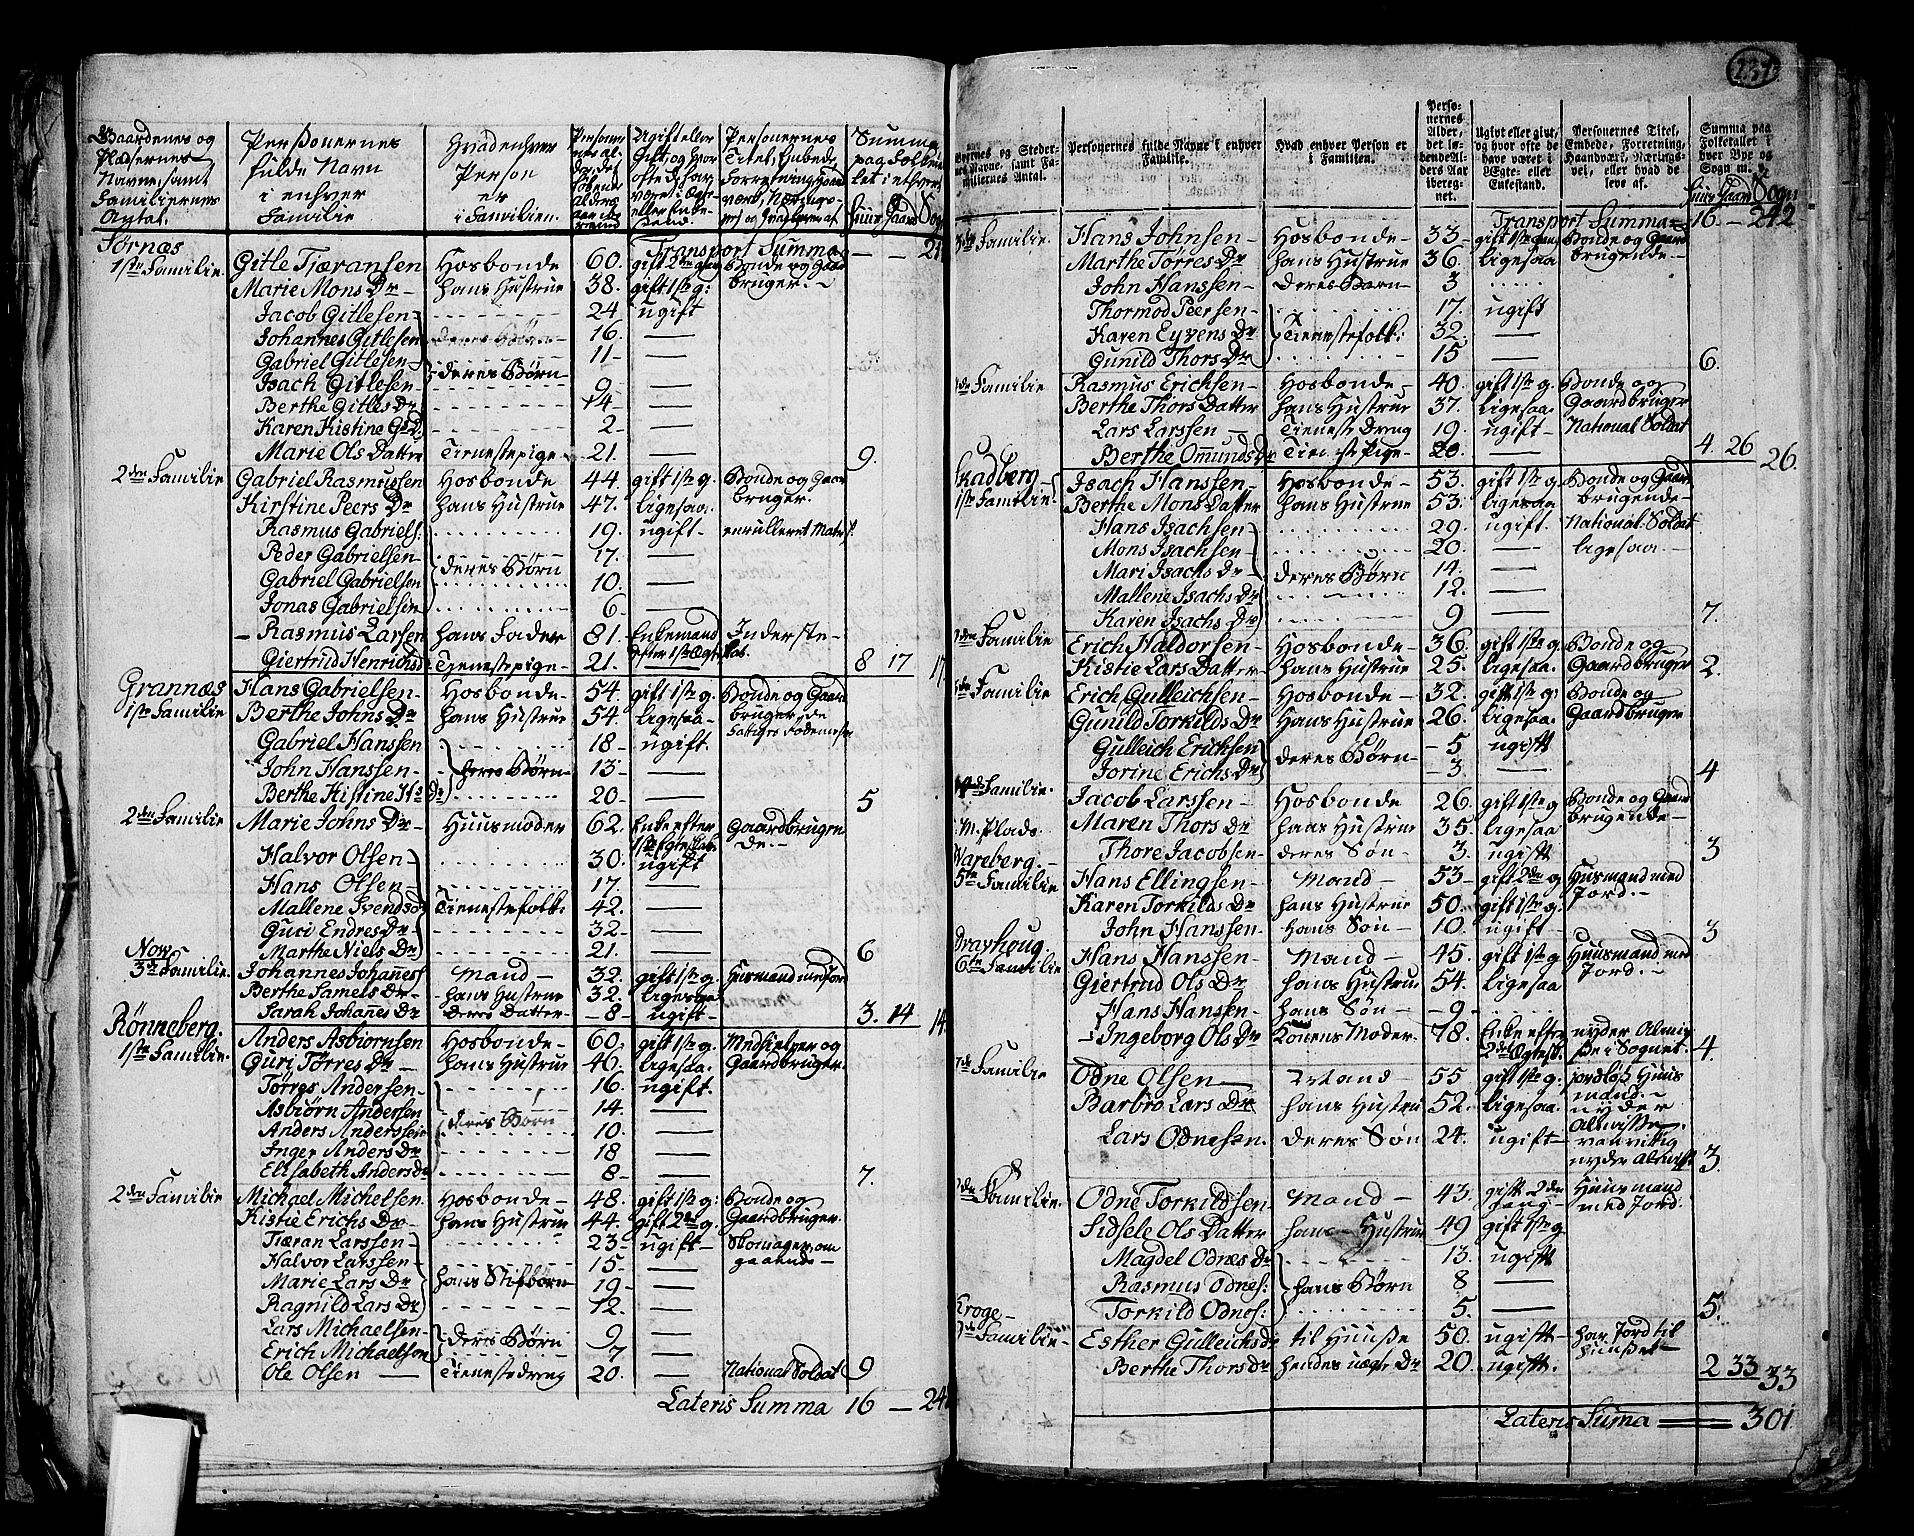 Gaardenes og Pladsernes Navne, samt Familiernes Antal. | Personernes fulde Navn i enhver Familie | Hvad enhver Person er i Familien. | Summa paa Folketallet i ethvert
Huus Gaard Sogn
Transport Summa — — 21
1ste Familie Gitle Tjæransen Hosbonde 60. gift 2den gang Bonde og Gaard
Marie Mons Dr — hans Hustrue 38. gift 1ste g: bruger. —
Jacob Gitlesen 24 ugift
Johannes Gitlesen deres Börn 16. —
Gabriel Gitlesen 11 —
Isach Gitlesen deres Börn 9 —
Berthe Gitles Dr 14 —
Karen Kistine G: D. 2 —
Marie Ols Datter Tienestepige 21. — 9.
2den Familie Gabriel Rasmussen Hosbonde 44. gift 1ste g. Bonde og Gaard
Kirstine Peers Dr hans Hustrue 47. ligesaa. bruger.
Rasmus Gabriels: 19. ugift. enrulleret Matros.
Peder Gabrielsen 17. —
Gabriel Gabrielsen deres Börn 10. —
Jonas Gabrielsen 6. —
Rasmus Larsen hans Fader 81. Enkemand Inderste
efter 1ste Ægteskab.
Giertrud Henrichsd: Tienestepige 21. — 8 17 17
Grannæs Hans Gabrielsen Hosbonde 54. gift 1ste g. Bonde og Gaard
1ste Familie Berthe Johns Dr hans Hustrue 54. ligesaa bruger, de
Gabriel Hanssen 18 ugift.
John Hanssen deres Börn 13 —
Berthe Kistine H: Dr 20 — 5
2den Familie Marie Johns Dr Huusmoder 62. Enke efter Gaardbrugen
1ste Egteskab de. —
Halvor Olsen 30. ugift
Hans Olsen 17. —
Mallene Svendsd: Tienestefolk: 42. —
Guri Endres Dr 32 —
Marthe Niels Dr 21. — 6
3de Familie Johannes Johanes: Mand 32. gift 1ste g. Husmand med Jord
Berthe Samels Dr hans Hustrue 32. ligesaa
Sarah Johanes Dr Deres Datter 8 ugift 3. 14 14
Rönneberg. Anders Asbiornsen Hosbonde 60. gift 1ste g. Medhielper og
1ste Familie. Guri Torres Dr hans Hustrue 46. ligesaa. Gaardbruger.
Torres Andersen 16. ugift.
Asbiörn Andersen deres Börn 14. —
Anders Anderssen 10. —
Inger Anders Dr 18 —
Elisabeth Anders dr 8 — 7.
2den Familie Michael Michelsen Hosbonde 48. gift 1ste g: Bonde og
Kistie Erichs Dr hans Hustrue 44. gift 2den g. Gaardbruger.
Tiæran Larssen 23 ugift Skomager om
Halvor Larssen 15 — gaaende —
Marie Lars Dr hans Stifbörn 19 —
Ragnild Lars Dr 12. —
Lars Michaelsen deres Börn 9 —
Erich Michaelsen 7 —
Ole Olsen Tienestedreng 20. — National Soldat 9
Lateris Summa 16 — 24
237
Byernes og Stedernes Navne, samt Familiernes Antal. | Personernes fulde Navne i enhver Familie. | Hvad enhver Person er i Familien. | Personernes Alder, det løbendeAlders Aar iberegnet. | Ugivt eller givt, og hvor ofte de have været i Ægte- eller Enkestand. | Personernes Titel, Embede, Forretning, Haandværk, Næringsvei, eller hvad de leve af. | Summa paa Folketallet i hver Bye og Sogn
Huus Gaard Sogn
Transport Summa 16. — 242
3de Familie. Hans Johnsen Hosbonde 33 gift 1ste gang Bonde og Gaard
Marthe Torres Dr hans Hustrue 36. ligesaa brugende
John Hanssen Deres Barn 3
Thormod Peersen 17. ugift
Karen Eyvens Dr Tienestefolk: 32. —
Gunild Thors Dr 15 — 6.
Familie Rasmus Erichsen Hosbonde 40. gift 1ste g. Bonde og
Berthe Thors Datter hans Hustrue 37. ligesaa Gaardbruger
Lars Larssen Tieneste Dreng 19. ugift National Soldat
Berthe Omunds Dr Tieneste Pige 20. — 4. 26 26.
Skadberg Isach Hanssen Hosbonde 53. gift 1ste g. Bonde og Gaard
1ste Familie. Berthe Mons Datter hans Hustrue 53. ligesaa brugende
Hans Isachsen 29. ugift National: Soldat
Mons Isachsen 20. — ligesaa
Mari Isachs Dr deres Börn 14. —
Mallene Isachs Dr 12. —
Karen Isachs Dr 9 — 7.
Familie Erich Haldorsen Hosbonde 36. gift 1ste g Bonde og
Kistie Lars Datter hans Hustrue 25. ligesaa. Gaardbruger 2.
Familie Erich Gulleichsen Hosbonde 32. gift 1ste g: Bonde og
Gunild Torkilds Dr Hans Hustrue 26. ligesaa. Gaardbruger
Gulleich Erichsen deres Börn 5 ugift
Jorine Erichs Dr 3 — 4
Familie. Jacob Larssen Hosbonde 26. gift 1ste g Bonde og Gaard
Maren Thors Dr hans Hustrue 35. ligesaa brugende
Plads
Thore Jacobsen deres Sön 3. ugift 3
Wareberg.
5te Familie Hans Ellingsen Mand 53 gift 2den g Husmand med
Karen Torkilds Dr hans Hustrue 50. gift 1ste g. Jord.
John Hanssen hans Sön 10. ugift 3
6te Familie Hans Hanssen Mand 45. gift 1ste g Huusmand med
Giertrud Ols Dr hans Hustrue 54. ligesaa Jord.
Hans Hanssen hans Sön 9
Ingeborg Ols Dr Konens Moder 78. Enke efter nyder Almis
2det Ægtesk. se i Sognet. 4.
7de Familie Odne Olsen Mand 55 gift 1ste g. jordløs Huus
Barbro Lars Dr hans Hustrue 52. ligesaa. mand. nyder Almisse.
Lars Odnesen. deres Sön 24. ugift vanvittig nyder Almisse 3.
8
Familie. Odne Torkildsen Mand 43. gift 2den gang Huusmand med Jord.
Sidsele Ols Datter hans Hustrue 49 gift 1ste g
Magdel Odnes Dr 13. ugift
Rasmus Odnes: hans Börn 8 —
Torkild Odnes: 5. — 5.
Kroge
Familie Esther Gulleichs dr til Huuse 50. ugift har Jord til Huuset
Berthe Thors dr hendes uægte Dr 20. ugift. 2 33 33
Lateris Suma 301